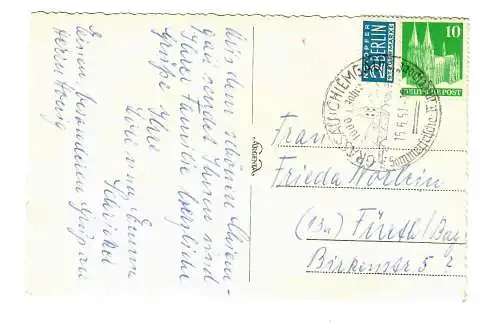 Aus dem schönen Chiem-
gau sendet Ihnen und
Ihrer Familie herzliche
Grüße Ihre
Emma
Einen besonderen Gruß an
Herrn Georg
NOTOPFER
2 BERLIN
STEUERMARKE
10
DEUTSCHE POST
CHIEMGAU
15.6.51
Sommerfrische
Frau
Frieda Wörlein
(13a) Fürth/Bay.
Birkenstr. 5